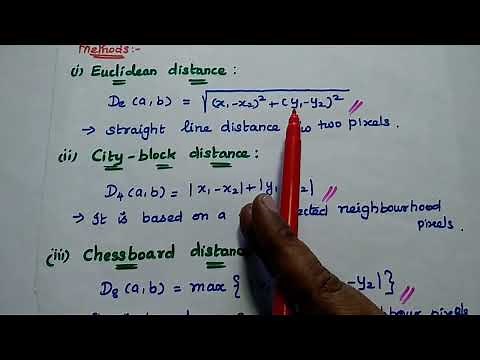 Methods:-
(i) Euclidean distance :
De (a, b) = √(x₁-x₂)² + (y₁-y₂)² //
→ straight line distance two pixels.
(ii) City-block distance :
D₄ (a, b) = |x₁-x₂| + |y₁ y₂| //
→ It is based on a neighbourhood
pixels.
(iii) Chessboard distan
D₈ (a, b) = max { -y₂|} //
pixels